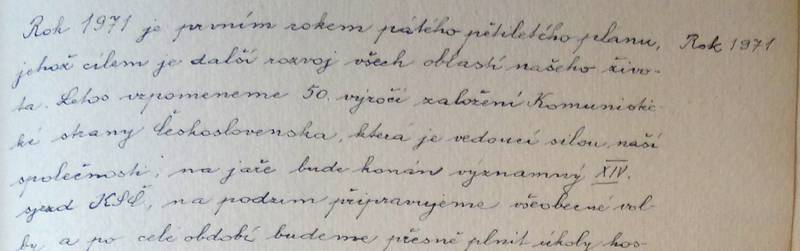 Rok 1971 je prvním rokem pátého pětiletého planu, Rok 1971
jehož cílem je další rozvoj všech oblastí našeho živo-
ta. Letos vzpomeneme 50. výročí založení Komunistic-
ké strany Československa, která je vedoucí silou naší
společnosti, na jaře bude konán významný XIV.
sjezd KSČ, na podzim připravujeme všeobecné vol-
by a po celé období budeme přesně plnit úkoly hos-